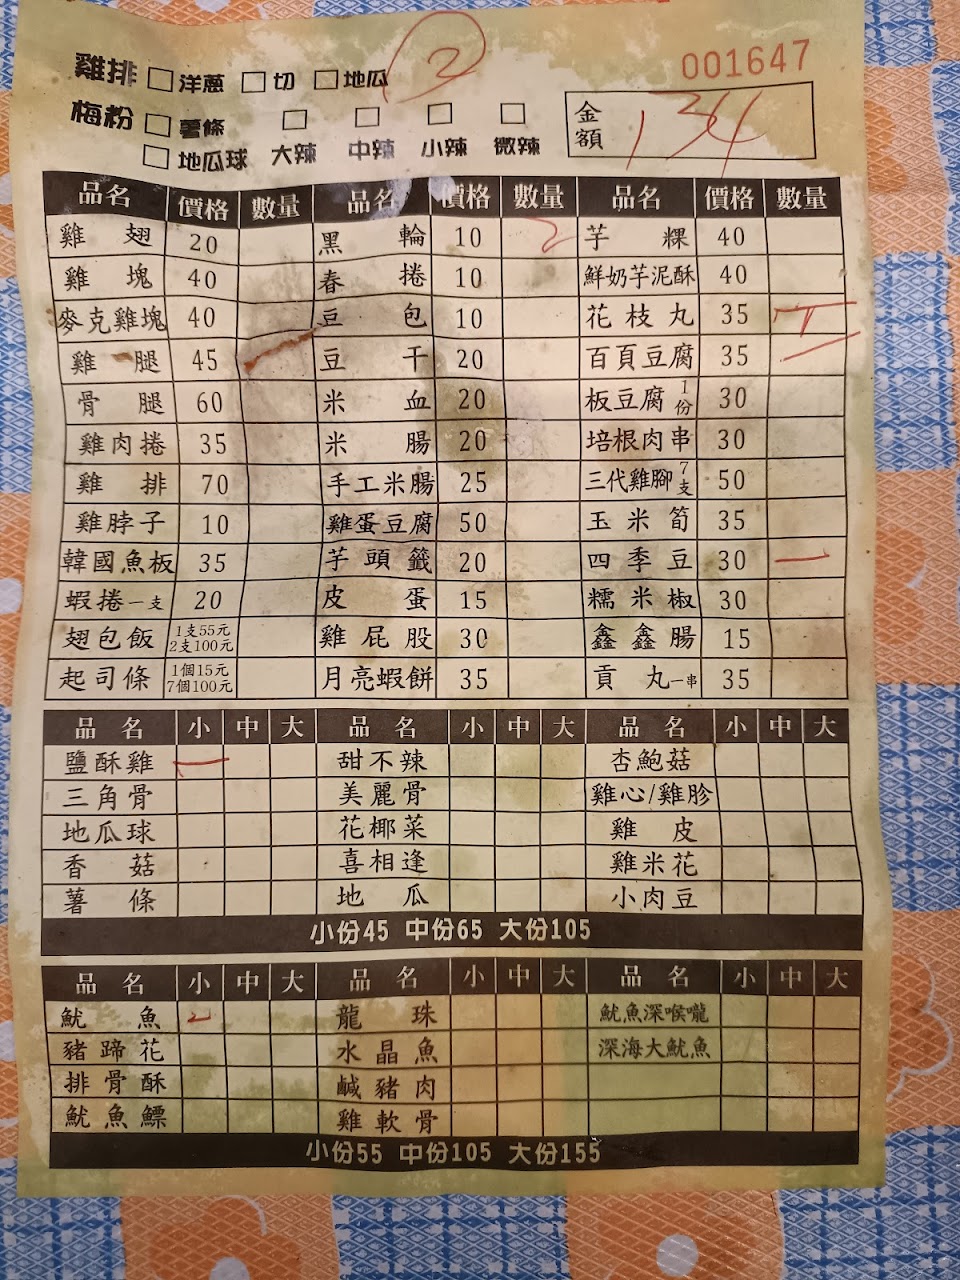 ② 001647
雞排 □洋蔥 □切 □地瓜
梅粉 □薯條 □大辣 □中辣 □小辣 □微辣 金額 134
□地瓜球
品名 價格 數量 品名 價格 數量 品名 價格 數量
雞翅 20 黑輪 10 2 芋粿 40
雞塊 40 春捲 10 鮮奶芋泥酥 40
麥克雞塊 40 豆包 10 花枝丸 35
雞腿 45 豆干 20 百頁豆腐 35
骨腿 60 米血 20 板豆腐1份 30
雞肉捲 35 米腸 20 培根肉串 30
雞排 70 手工米腸 25 三代雞腳7支 50
雞脖子 10 雞蛋豆腐 50 玉米筍 35
韓國魚板 35 芋頭籤 20 四季豆 30 一
蝦捲一支 20 皮蛋 15 糯米椒 30
翅包飯 1支55元 2支100元 雞屁股 30 鑫鑫腸 15
起司條 1個15元 7個100元 月亮蝦餅 35 貢丸一串 35
品名 小 中 大 品名 小 中 大 品名 小 中 大
鹽酥雞 一 甜不辣 杏鮑菇
三角骨 美麗骨 雞心/雞胗
地瓜球 花椰菜 雞皮
香菇 喜相逢 雞米花
薯條 地瓜 小肉豆
小份45 中份65 大份105
品名 小 中 大 品名 小 中 大 品名 小 中 大
魷魚 龍珠 魷魚深喉嚨
豬蹄花 水晶魚 深海大魷魚
排骨酥 鹹豬肉
魷魚鰾 雞軟骨
小份55 中份105 大份155